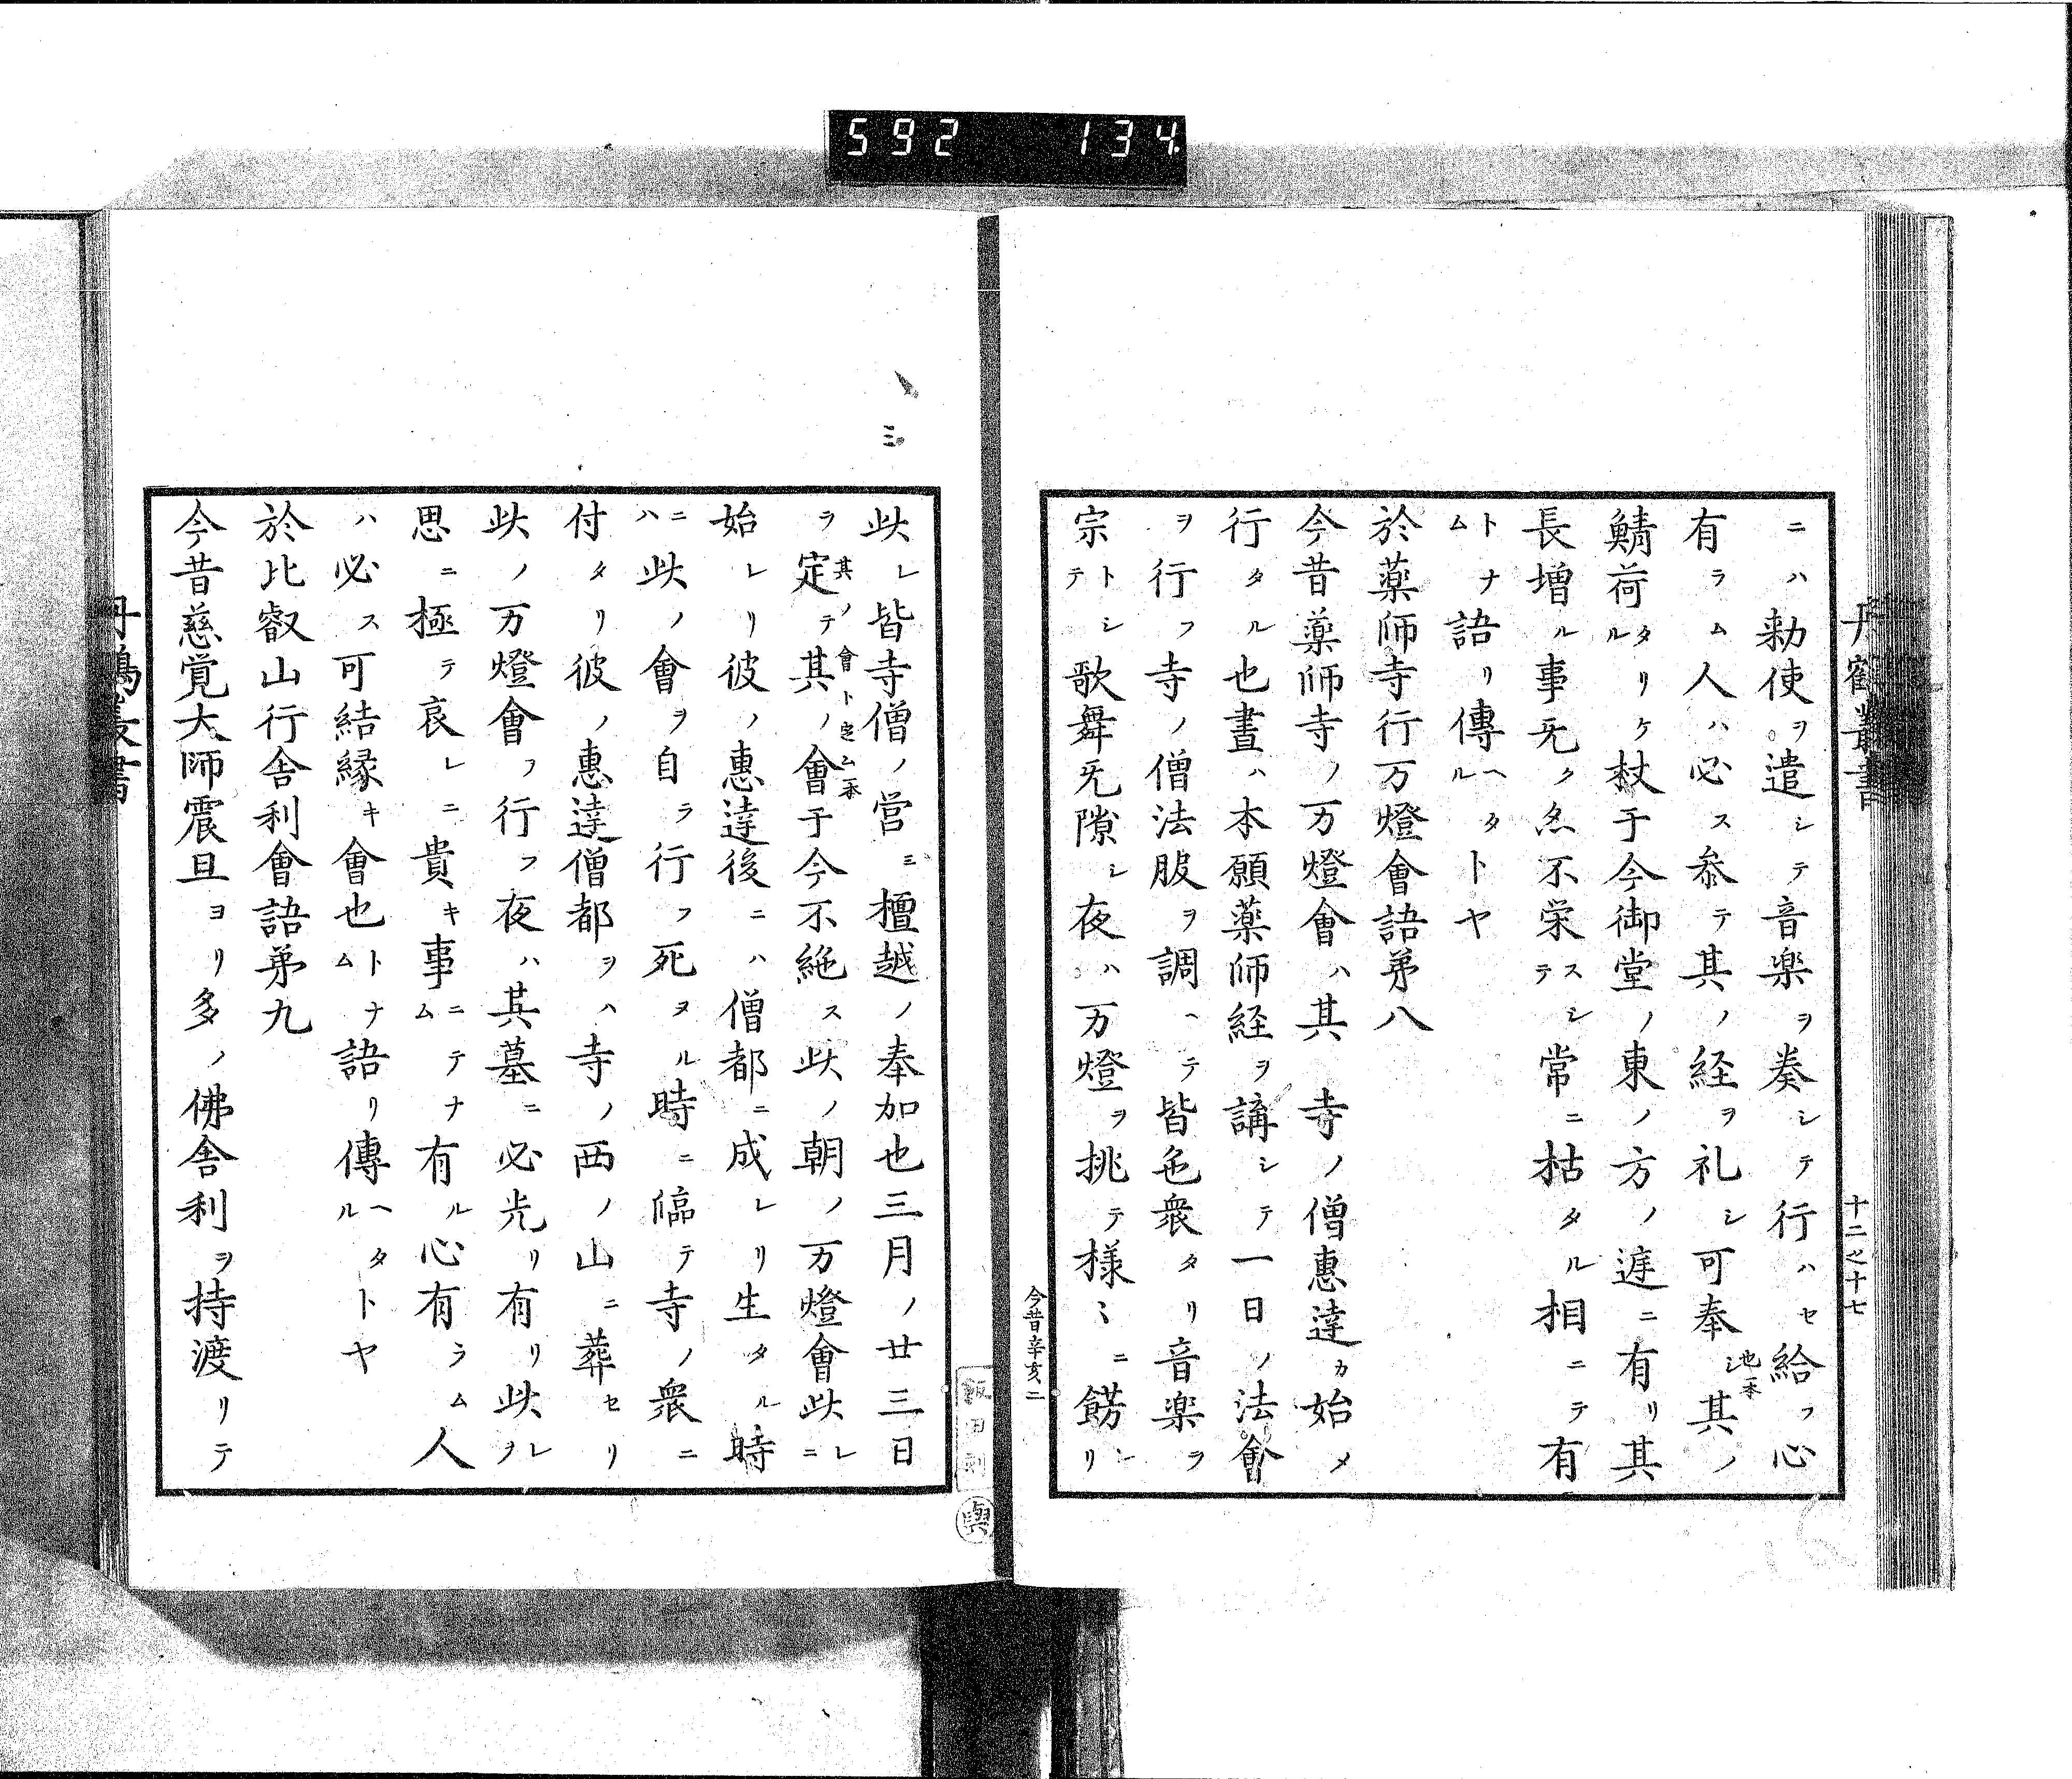 592 134
丹鶴叢書
十二之十七
ニハ勅使ヲ遣シテ音楽ヲ奏シテ行ハセ給フ心
有ラム人ハ必ス参テ其ノ経ヲ礼シ可奉シ其ノ
也一本
鯖荷タリケル杖于今御堂ノ東ノ方ノ遅ニ有リ其
長増ル事旡ク亦不栄スシテ常ニ枯タル相ニテ有
トナム語リ傳ヘタルトヤ
於薬師寺行万燈會語苐八
今昔薬師寺ノ万燈會ハ其 寺ノ僧惠達カ始メ
行タル也晝ハ本願薬師経ヲ講シテ一日ノ法會
ヲ行フ寺ノ僧法服ヲ調ヘテ皆色衆タリ音楽ヲ
宗トシテ歌舞旡隙シ夜ハ万燈ヲ挑テ様〻ニ餝レリ
今昔辛亥二
飯田
此レ皆寺僧ノ営ミ檀越ノ奉加也三月ノ廿三日
ヲ定テ其ノ會于今不絶ス此ノ朝ノ万燈會此レニ
其ノ會ト定ム一本
始レリ彼ノ惠達後ニハ僧都ニ成レリ生タル時
ニハ此ノ會ヲ自ラ行フ死ヌル時ニ臨テ寺ノ衆ニ
付タリ彼ノ惠達僧都ヲハ寺ノ西ノ山ニ葬セリ
此ノ万燈會ヲ行フ夜ハ其墓ニ必光リ有リ此レヲ
思ニ極テ哀レニ貴キ事ニテナム有ル心有ラム人
ハ必ス可結縁キ會也トナム語リ傳ヘタルトヤ
於比叡山行舎利會語苐九
今昔慈覚大師震旦ヨリ多ノ佛舎利ヲ持渡リテ
丹鶴叢書